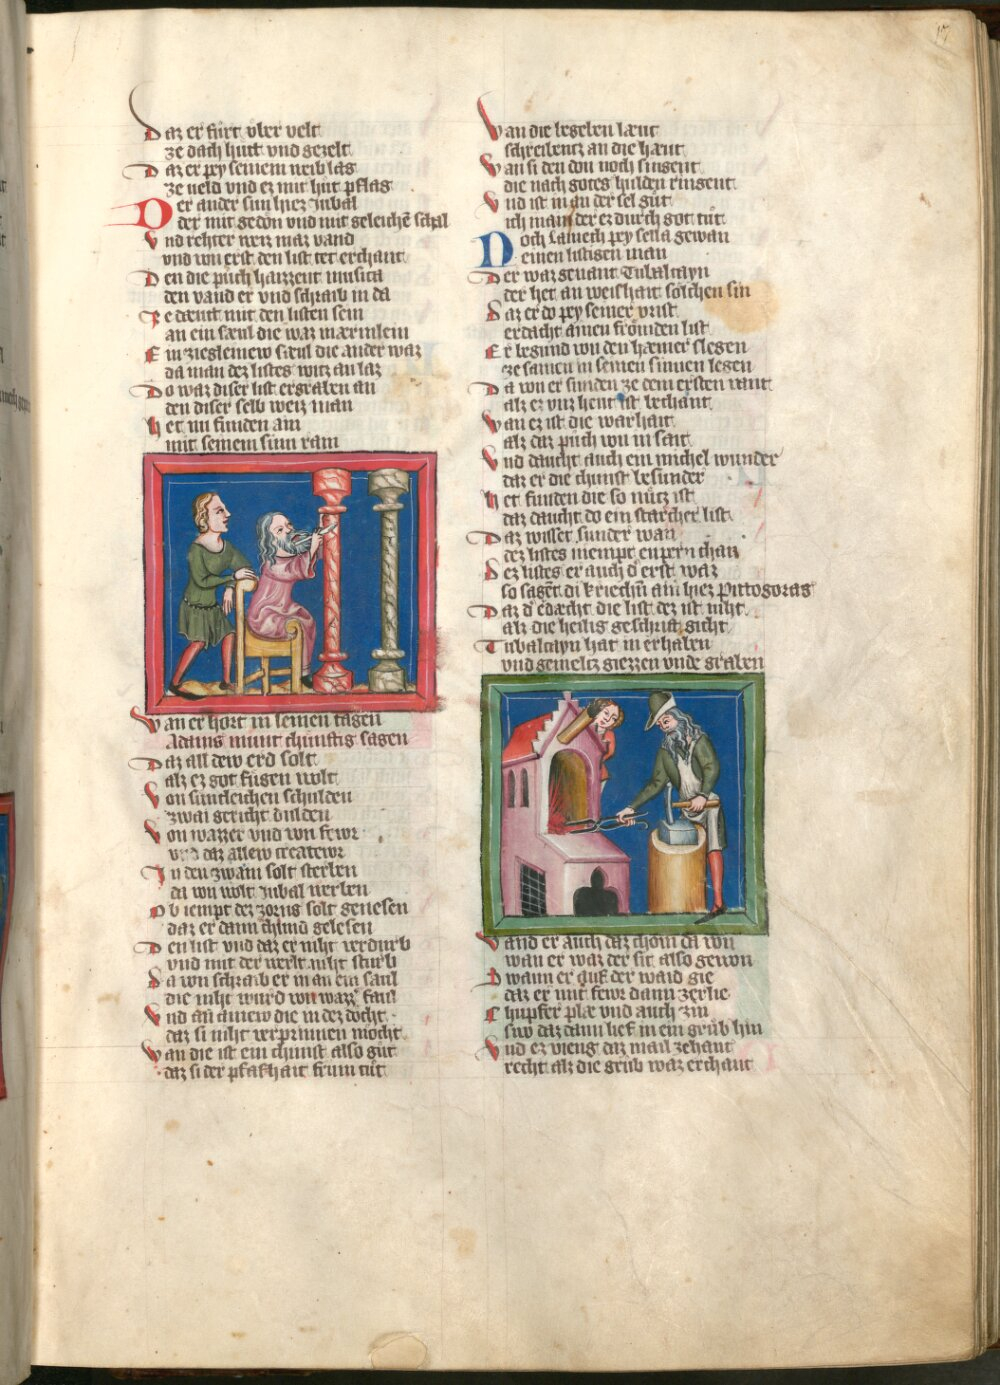 17
Daz er fůrt vber velt
ze dach hutt vnd gezelt
Daz er pey seinem weib lag
ze veld vnd ez mit hůt pflag
Der ander sun hiez Jubal
der mit gedön vnd mit geleichē schal
Vnd rehter weiz maz vand
vnd von erst den list tet erchant
Den die půch haizzent musica
den vand er vnd schraib in da
Redleich mit den listen sein
an ein sæul die waz mærmlein
Ein ziegleinew sæul die ander waz
da man dez listes witz an laz
Do waz diser list ergraben an
den diser selb weiz man
Het nu funden am
mit seinem sinn ram
Wan er hort in seinen tagen
Adams munt chunftig sagen
Daz all dew erd solt
alz ez got fügen wolt
Von suntleichen schulden
zwai gericht dulden
Von wazzer vnd von fewr
vnd daz allew createwr
In den zwain solt sterben
da von wolt Jubal werben
Ob iempt dez zorns solt genesen
daz er dann chund gelesen
Den list vnd daz er niht verdurb
vnd mit der werlt niht sturb
Da von schraib er in an ein saul
die niht wurd von wazz' faul
Vnd an ainew die in dez docht
daz si niht verprinnen mocht
Wan die ist ein chunst also gůt
daz si der pfafhait frum tůt
Wan die leselen lænt
schreibentz an die hænt
Wan si den don noch singent
die nach gotes hulden ringent
Vnd ist in an der sel gůt
ich main der ez durch got tůt
Noch Lamech pey sella gewan
einen listigen man
Der waz genant Tubalcayn
der het an weishait sölchen sin
Daz er do pey seiner vrist
erdacht ainen frömden list
Er begund von den hæmer slegen
ze samen in seinen sinnen legen
Da von er funden ze dem ersten vant
alz ez vnz heut ist bechant
Wan ez ist die warhait
alz daz půch von in sait
Vnd daucht auch ein michel wunder
daz er die chunst besunder
Het funden die so nůtz ist
daz daucht do ein starcher list
Daz wisset sunder wan
dez listes niempt enpern chan
Dez listes er auch d' erst waz
so sagēt di kriechn̄ ain hiez Pittogoras
Daz d' edæcht die list dez ist niht
alz die heilig geschrift gicht
Tubalcayn hat in erhaben
vnd gemeltz giezzen vnde graben
Wand er auch daz chom da von
wan er waz der sit also gewon
Swann er auf der waid gie
daz er mit fewr dann zerlie
Chupfer plæ vnd auch zin
swo daz dann lief in ein grůb hin
Vnd ez vieng daz mail zehant
recht alz die grůb waz erchant